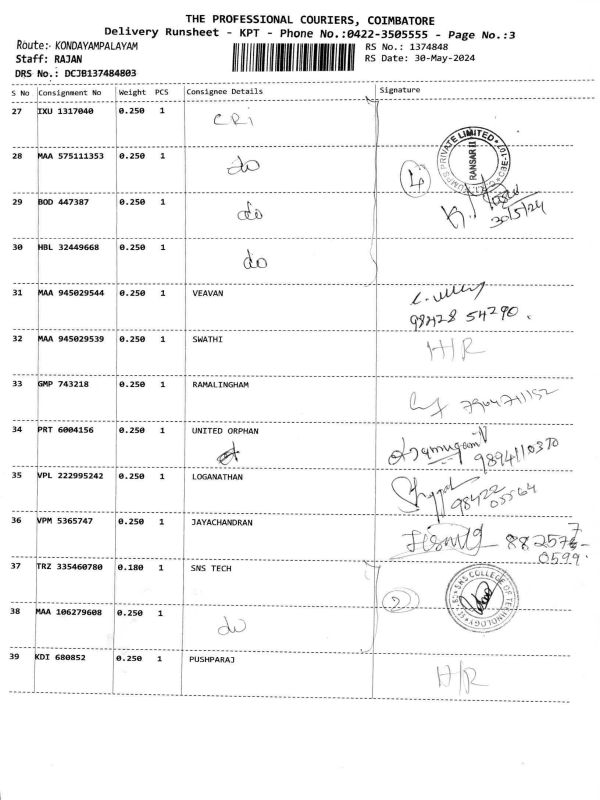 THE PROFESSIONAL COURIERS, COIMBATORE
Delivery Runsheet - KPT - Phone No.:0422-3505555 - Page No.:3
Route:- KONDAYAMPALAYAM
RS No.: 1374848
Staff: RAJAN
RS Date: 30-May-2024
DRS No.: DCJB137484803
S No Consignment No Weight PCS Consignee Details Signature
27 IXU 1317040 0.250 1 CRi
28 MAA 575111353 0.250 1 do
PRIVATE LIMITED
29 BOD 447387 0.250 1 do
30/5/24
30 HBL 32449668 0.250 1 do
31 MAA 945029544 0.250 1 VEAVAN
98428 54290.
32 MAA 945029539 0.250 1 SWATHI H/R
33 GMP 743218 0.250 1 RAMALINGHAM
34 PRT 6004156 0.250 1 UNITED ORPHAN
9894110370
35 VPL 222995242 0.250 1 LOGANATHAN
98422
05564
36 VPM 5365747 0.250 1 JAYACHANDRAN
37 TRZ 335460780 0.180 1 SNS TECH
2
SNS COLLEGE OF TECHNOLOGY
38 MAA 106279608 0.250 1 do
39 KDI 680852 0.250 1 PUSHPARAJ H/R